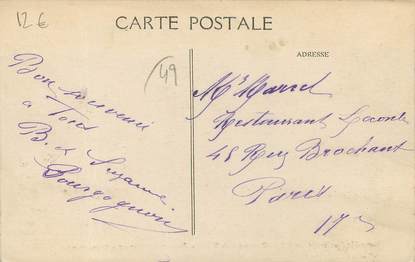 12 €
CARTE POSTALE
49
ADRESSE
Bon souvenir
a Tous
B. et Suzanne
Bourgognon
Mr Marcel
Restaurant Lecomte
45 Rue Brochant
Paris
17e